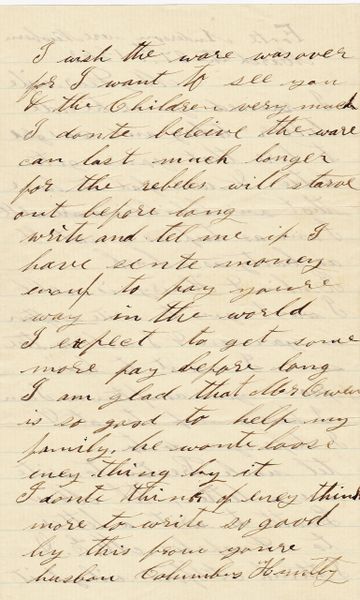 I wish the ware was over
for I want to see you
& the Children very much
I donte beleive the ware
can last much longer
for the rebeles will starve
out before long
write and tel me if I
have sente money
enouf to pay youre
way in the world
I expect to get some
more pay before long
I am glad that Mr Ewen
is so good to help my
family, he wonte loose
eney thing by it
I donte think of eney think
more to write so good
by this from youre
husbon Columbus